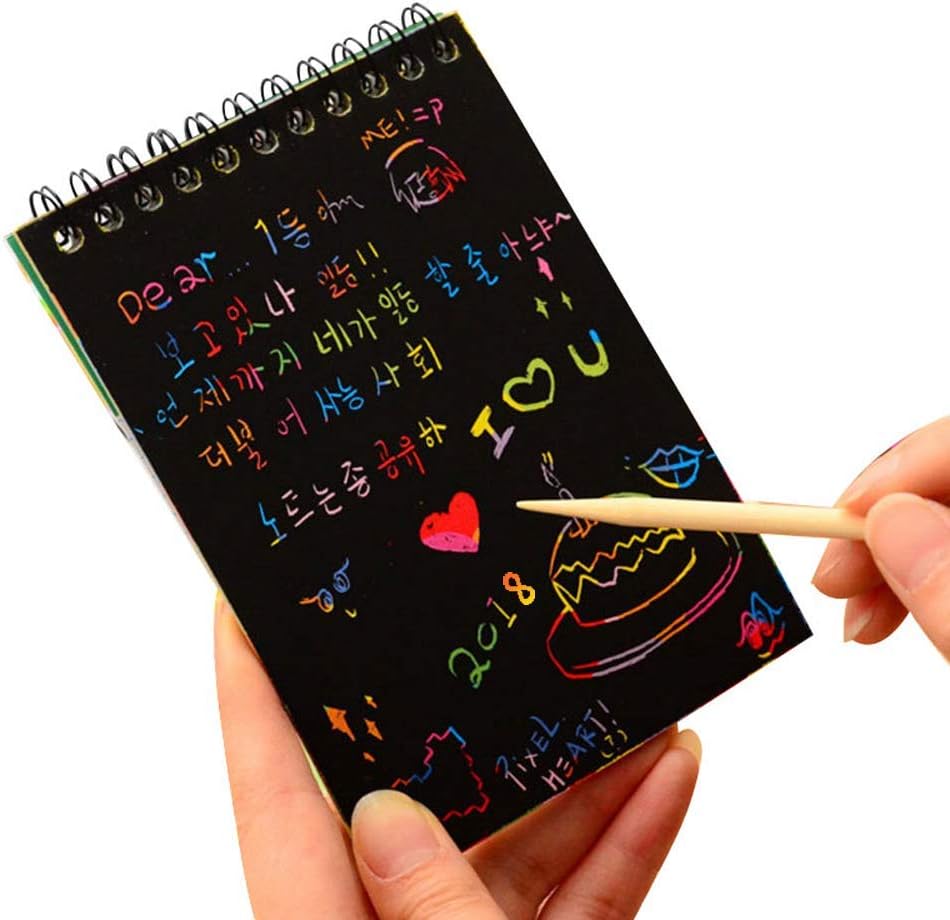 ME! =P
Dear... 1등 아
보고있나 일등!!
언제까지 네가 일등 할 줄 아냐~
더불어 사능 사회
노트는 좀 공유하
I ♡ U
2018
PIXEL
HEART!
(?)